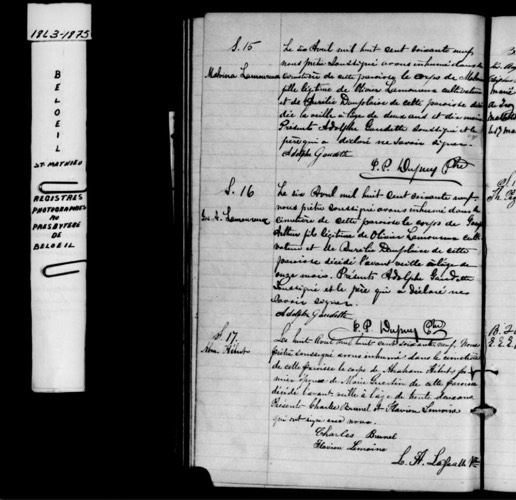 1863-1875
BELOEIL
ST-MATHIEU
REGISTRES
PHOTOGRAPHIES
AU
PRESBYTERE
DE
BELOEIL
S. 15
Malvina Lamoureux
Le six Avril mil huit cent soixante neuf,
nous prêtre soussigné avons inhumé dans le
cimetière de cette paroisse le corps de Malvina
fille légitime de Lamoureux cultivateur
et de Aurélie de cette paroisse décé
dée la veille à l'âge de deux ans et dix mois
Présents Adolphe Gaudette soussigné et le
père qui a déclaré ne savoir signer.
Adolphe Gaudette
P. P. Dupuy Ptre
S. 16
Lamoureux
Le six Avril mil huit cent soixante neuf,
nous prêtre soussigné avons inhumé dans le
cimetière de cette paroisse le corps de
fils légitime de Olivier Lamoureux cult
ivateur et de Aurélie de cette
paroisse décédé l'avant veille à l'âge de
onze mois. Présents Adolphe Gaudette
soussigné et le père qui a déclaré ne
savoir signer.
Adolphe Gaudette
P. P. Dupuy Ptre
S. 17.
Le huit Avril mil huit cent soixante neuf, Nous
prêtre soussigné avons inhumé dans le cimetière
de cette paroisse le corps de Abraham
époux de Marie Guertin de cette paroisse
décédé l'avant veille à l'âge de trente
Présents Charles Brunel & Flavien Lemoine
qui ont signé avec nous.
Charles Brunel
Flavien Lemoine
L. A.